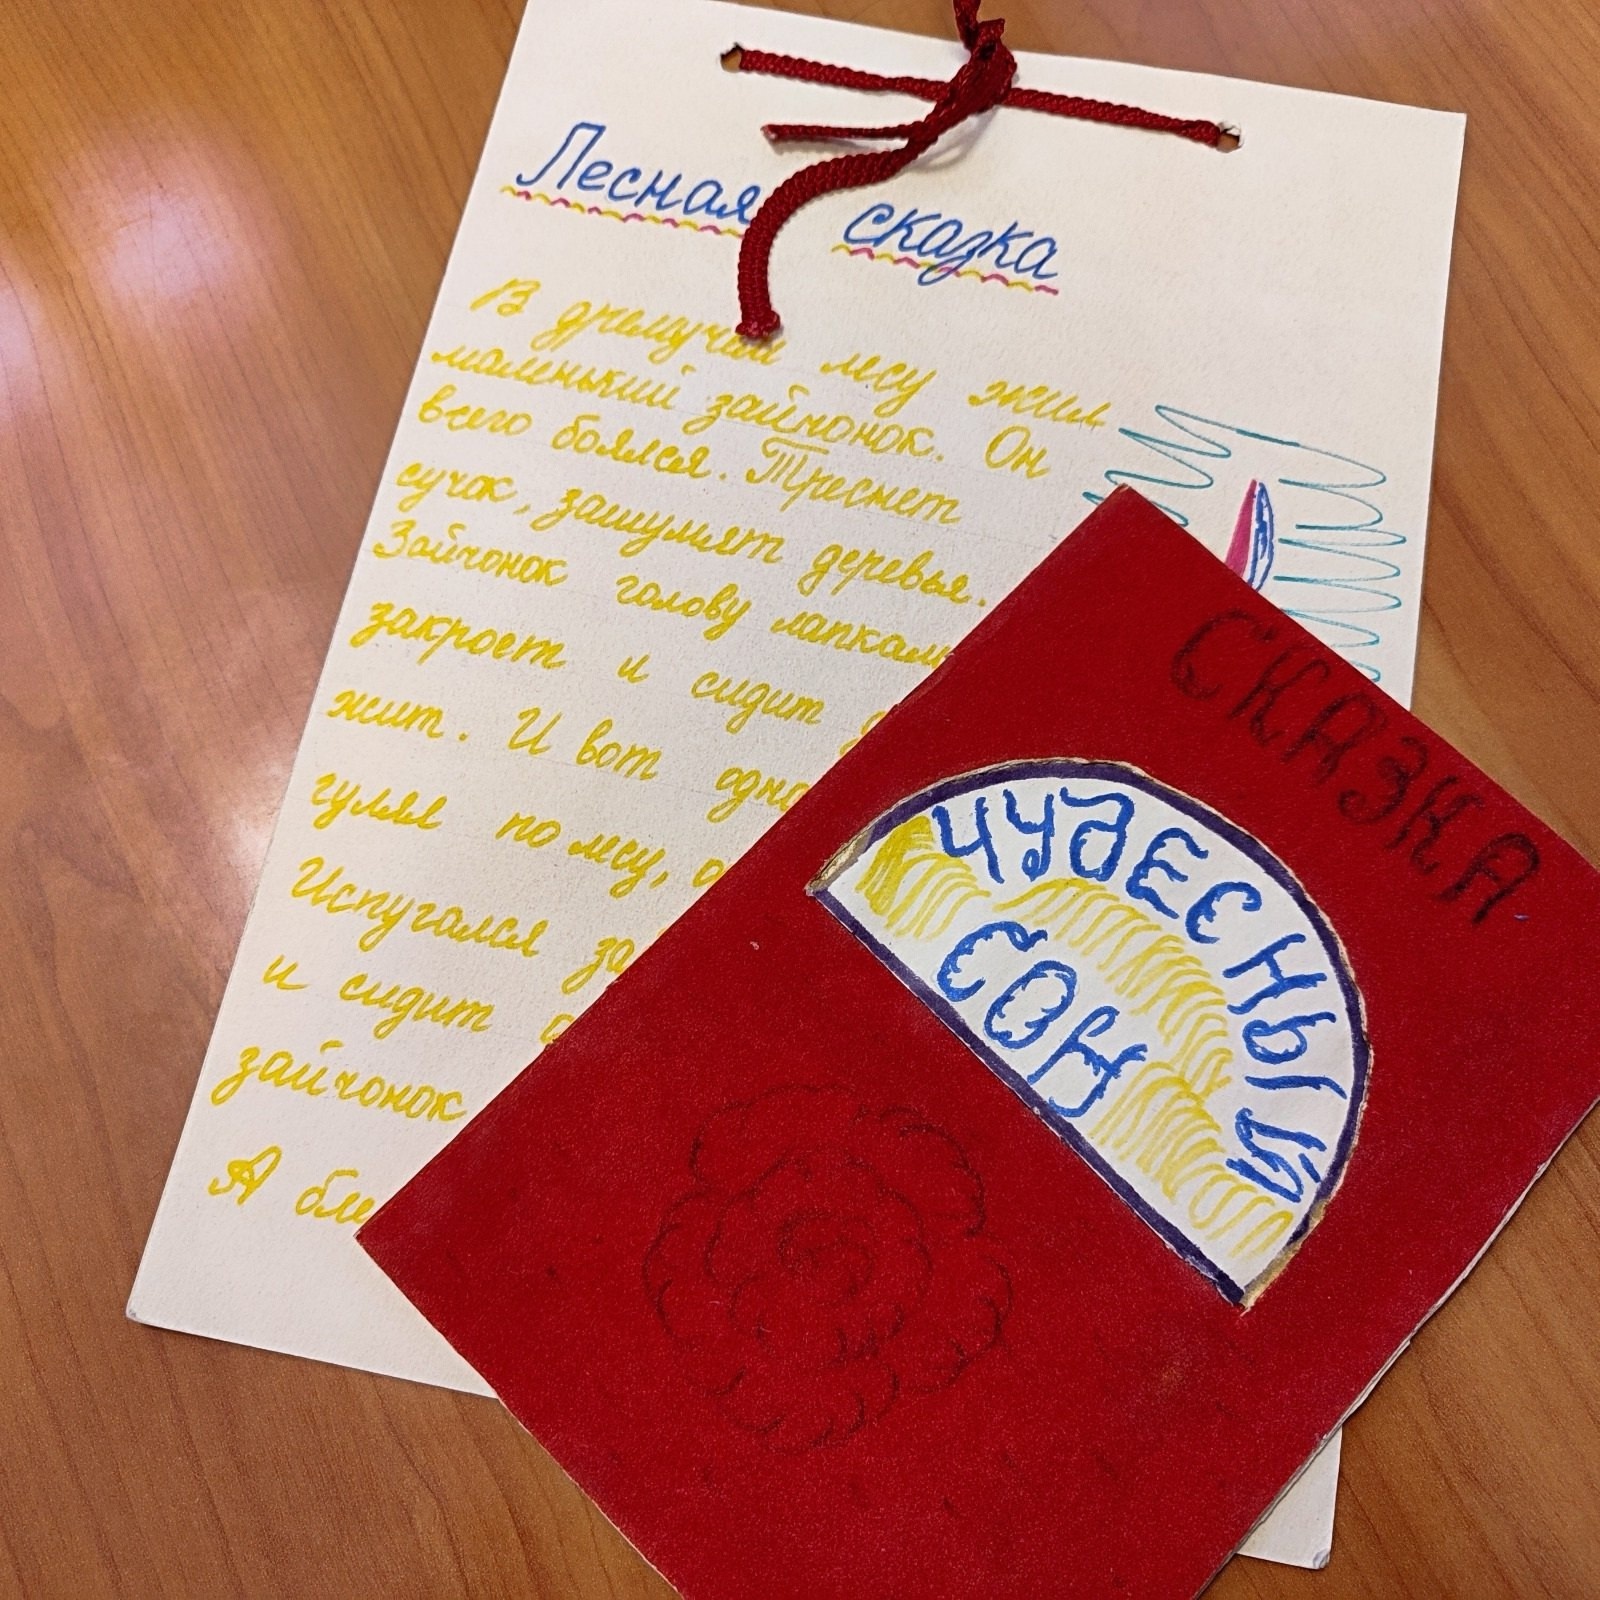 Лесная сказка
В дремучем лесу жил
маленький зайчонок. Он
всего боялся. Треснет
сучок, зашумят деревья.
Зайчонок голову лапкам
закроет и сидит д
жит. И вот одна
гулял по лесу, о
Испугался за
и сидит
зайчонок
А бле
СКАЗКА
ЧУДЕСНЫЙ
СОН